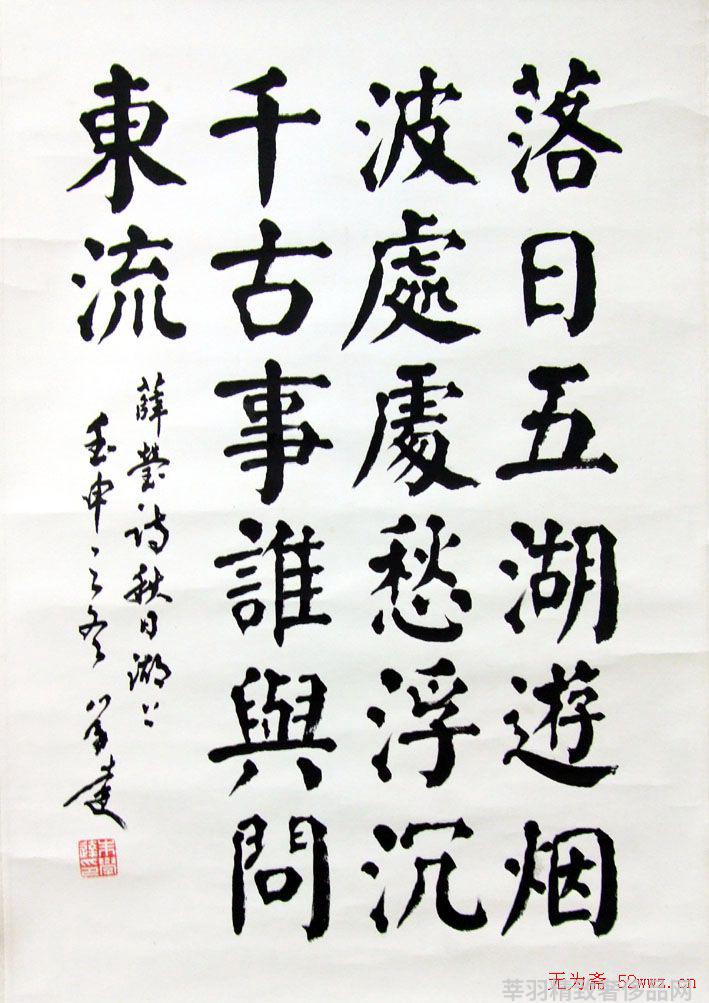 落日五湖遊烟
波處處愁浮沉
千古事誰與問
東流
薛瑩诗秋日湖上
壬申之冬 学達
无为斋 52wwz.cn
莘羽精致奢侈品网